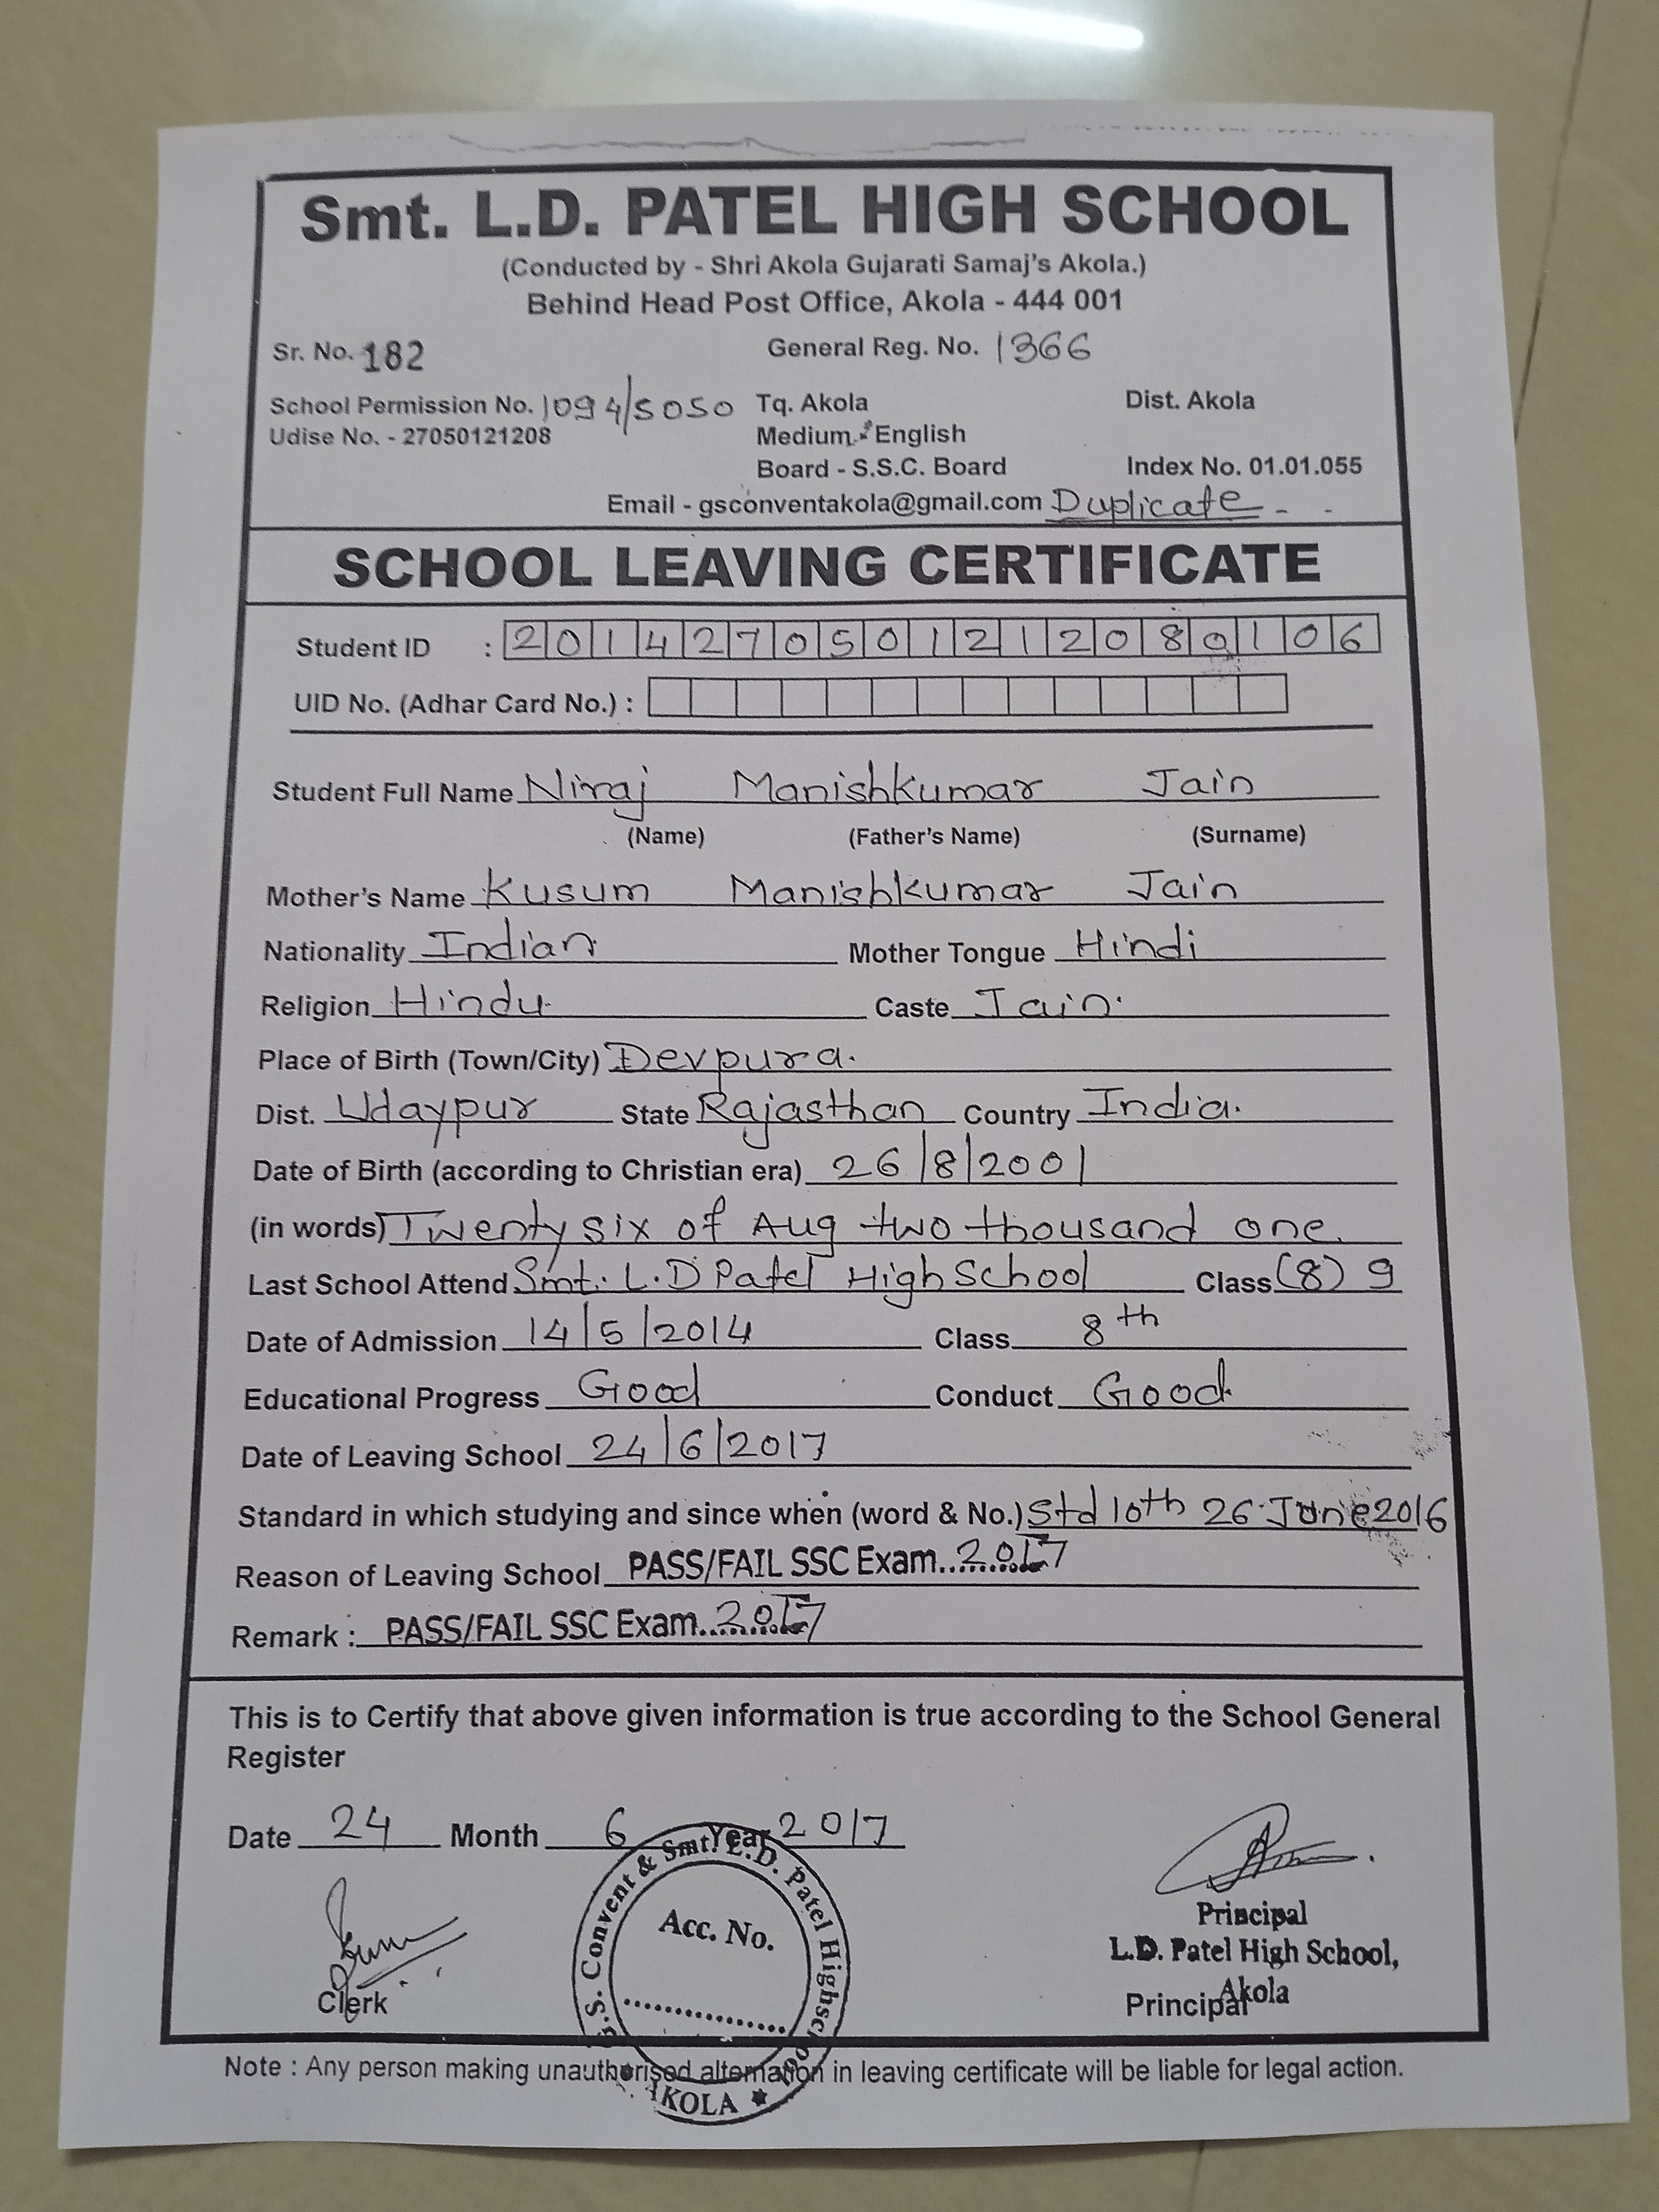 Smt. L.D. PATEL HIGH SCHOOL
(Conducted by - Shri Akola Gujarati Samaj's Akola.)
Behind Head Post Office, Akola - 444 001
Sr. No. 182 General Reg. No. 1366
School Permission No. 1094/5050 Tq. Akola Dist. Akola
Udise No. - 27050121208 Medium - English
Board - S.S.C. Board Index No. 01.01.055
Email - gsconventakola@gmail.com Duplicate
SCHOOL LEAVING CERTIFICATE
Student ID : 2014270501212080106
UID No. (Adhar Card No.) :
Student Full Name Niraj Manishkumar Jain
(Name) (Father's Name) (Surname)
Mother's Name Kusum Manishkumar Jain
Nationality Indian Mother Tongue Hindi
Religion Hindu Caste Jain
Place of Birth (Town/City) Devpura.
Dist. Udaypur State Rajasthan Country India.
Date of Birth (according to Christian era) 26/8/2001
(in words) Twenty six of Aug two thousand one.
Last School Attend Smt. L.D Patel High School Class (8) 9
Date of Admission 14/5/2014 Class 8th
Educational Progress Good Conduct Good
Date of Leaving School 24/6/2017
Standard in which studying and since when (word & No.) Std 10th 26 June 2016
Reason of Leaving School PASS/FAIL SSC Exam.. 2017
Remark : PASS/FAIL SSC Exam.. 2017
This is to Certify that above given information is true according to the School General
Register
Date 24 Month 6 Year 2017
G.S. Convent & Smt. L.D. Patel Highschool
Acc. No.
AKOLA
Clerk
Principal
L.D. Patel High School,
Akola
Principal
Note : Any person making unauthorised alternation in leaving certificate will be liable for legal action.